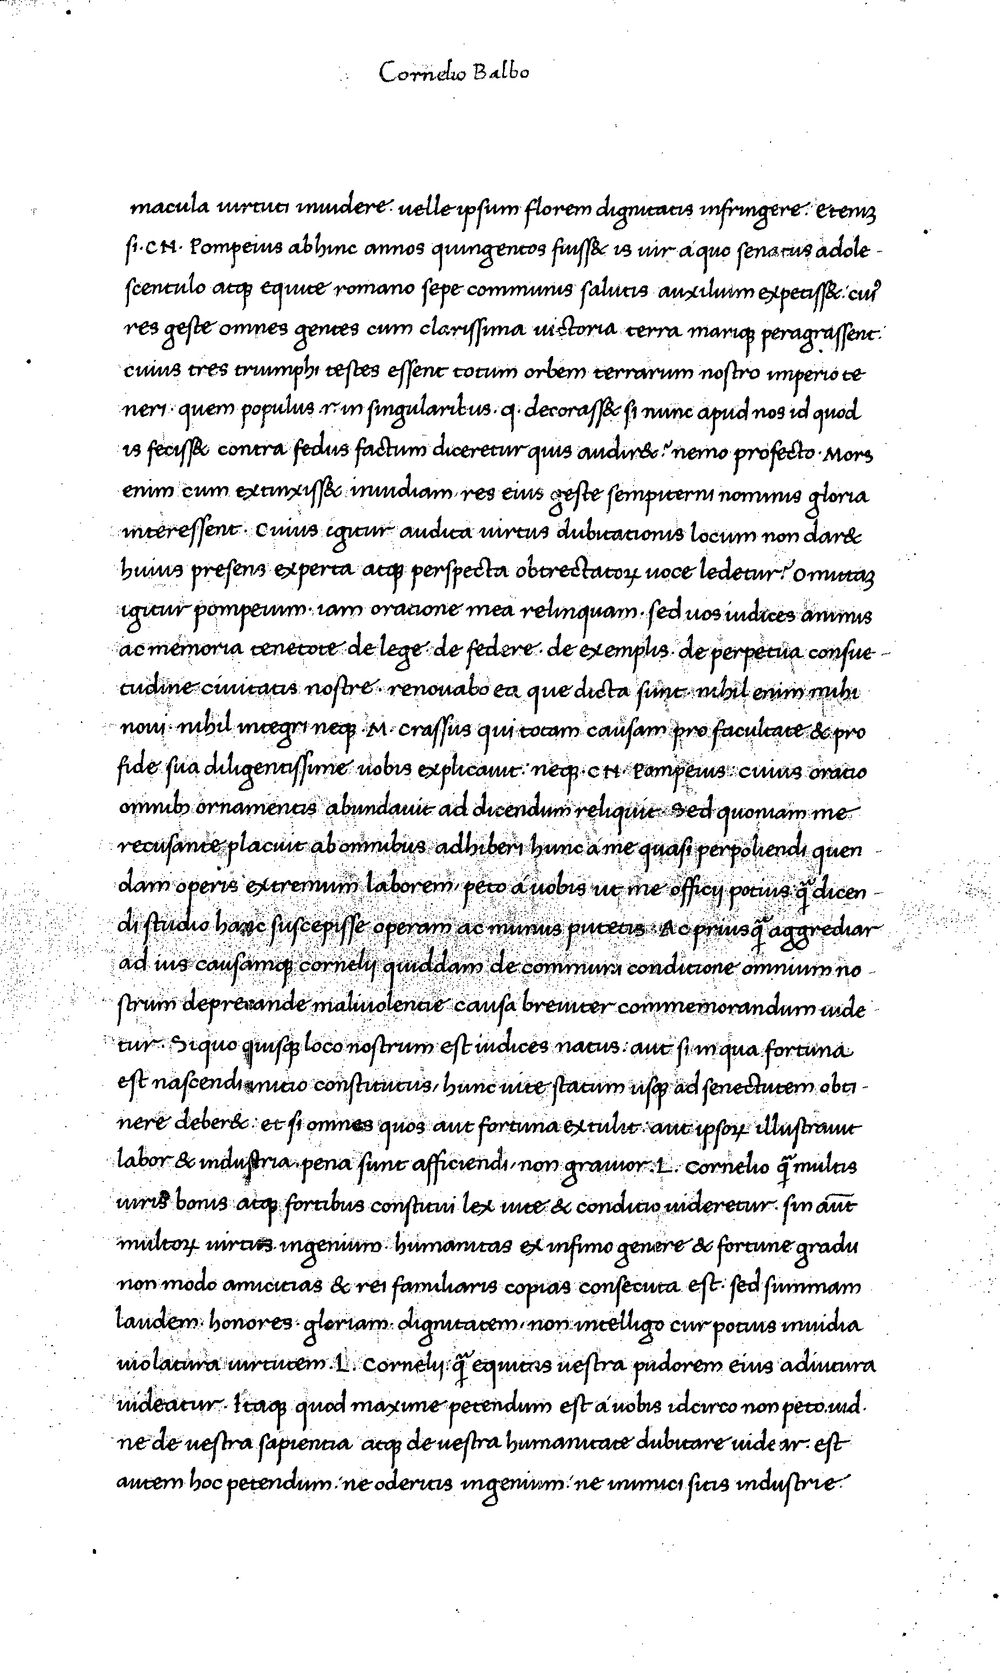 Cornelio Balbo
macula uirtuti inuidere. uelle ipsum florem dignitatis infringere. Eteniꝫ
si. CN. Pompeius abhinc annos quingentos fuiss& is uir a quo senatus adole-
scentulo atqꝫ equite romano sepe communis salutis auxilium expetiss&. cui᾿
res geste omnes gentes cum clarissima uictoria terra mariqꝫ peragrassent.
cuius tres triumphi testes essent totum orbem terrarum nostro imperio te
neri. quem populus .r. in singularibus .q. decorass& si nunc apud nos id quod
is feciss& contra fedus factum diceretur quis audir&? nemo profecto. Mors
enim cum extinxiss& inuidiam, res eius geste sempiterni nominis gloria
interessent. Cuius igitur audita uirtus dubitationis locum non dar&
huius presens experta atqꝫ perspecta obtrectatoꝝ uoce ledetur? Omittaꝫ
igitur pompeium. iam oratione mea relinquam. sed uos iudices animis
ac memoria tenetote de lege. de federe. de exemplis. de perpetua consue-
tudine ciuitatis nostre. renouabo ea que dicta sunt. nihil enim mihi
noui. nihil integri neqꝫ .M. Crassus qui totam causam pro facultate & pro
fide sua diligentissime uobis explicauit. neqꝫ. CN. Pompeius. cuius oratio
omnibꝫ ornamentis abundauit ad dicendum reliquit. Sed quoniam me
recusante placuit ab omnibus adhiberi hunc a me quasi perpoliendi quen
dam operis extremum laborem, peto a uobis ut me officij potius q̃ dicen-
di studio hanc suscepisse operam ac munus putetis. Ac priusq̃ aggrediar
ad ius causamqꝫ cornelij quiddam de communi conditione omnium no-
strum deprecande maliuolentie causa breuiter commemorandum uide
tur. Si quo quisqꝫ loco nostrum est iudices natus. aut si in qua fortuna
est nascendi initio constitutus, hunc uite statum usqꝫ ad senectutem obti-
nere deber&. et si omnes quos aut fortuna extulit. aut ipsoꝝ illustrauit
labor & industria. pena sunt afficiendi, non grauior .L. Cornelio q̃ multis
uiris bonis atqꝫ fortibus constitui lex uite & conditio uideretur. sin aũt
multoꝝ uirtus ingenium. humanitas ex infimo genere & fortune gradu
non modo amicitias & rei familiaris copias consecuta est. sed summam
laudem. honores. gloriam. dignitatem, non intelligo cur potius inuidia
uiolatura uirtutem .L. Cornelij q̃ equitas uestra pudorem eius adiutura
uideatur. Itaqꝫ quod maxime petendum est a uobis idcirco non peto .iud.
ne de uestra sapientia atqꝫ de uestra humanitate dubitare uidear. est
autem hoc petendum. ne oderitis ingenium. ne inimici sitis industrie.